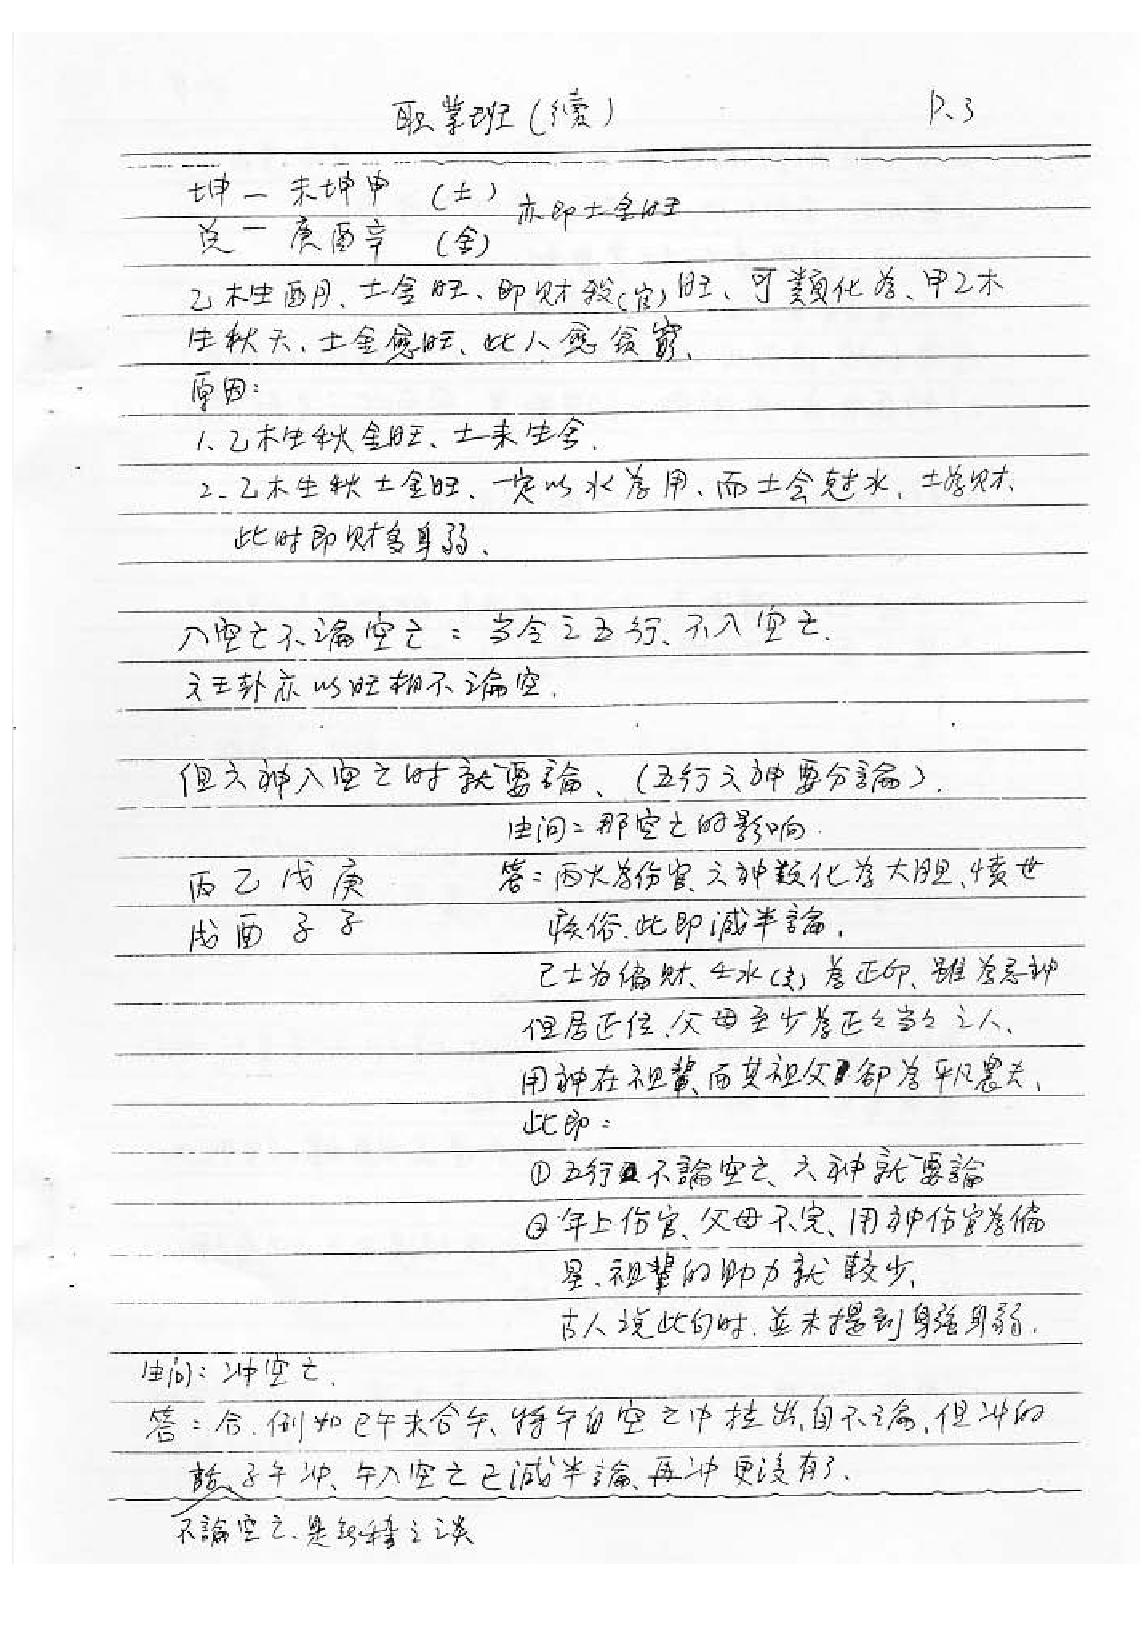 职業班(續) P.3
坤一未坤申 (土) 亦即土金旺
兑一庚酉辛 (金)
乙木生酉月、土金旺、即财殺(官)旺、可類化為、甲乙木
生秋天、土金愈旺、此人愈貧窮、
原因:
1、乙木生秋金旺、土来生金.
2、乙木生秋土金旺、一定以水為用、而土会尅水、土為财、
此时即财多身弱、
入空亡不論空亡:当令之五行、不入空亡.
文王卦亦以旺相不論空.
但六神入空亡时就要論、(五行六神要分論).
生问:那空亡的影响.
丙乙戊庚
戌酉子子
答:丙火為伤官、六神類化為大胆、憤世
疾俗、此即減半論、
己土为偏财、壬水(亥)為正印、雖為忌神
但居正位、父母至少為正々当々之人、
用神在祖輩、而其祖父卻為平凡農夫、
此即:
①五行不論空亡、六神就要論
②年上伤官、父母不完、用神伤官為偏
星、祖輩的助力就較少、
古人说此句时、並未提到身強身弱.
生问:冲空亡.
答:合、例如巳午未合午、将午自空亡中拉出、自不論、但冲的
話、子午冲、午入空亡已減半論、再冲更没有了.
不論空亡、是無稽之谈